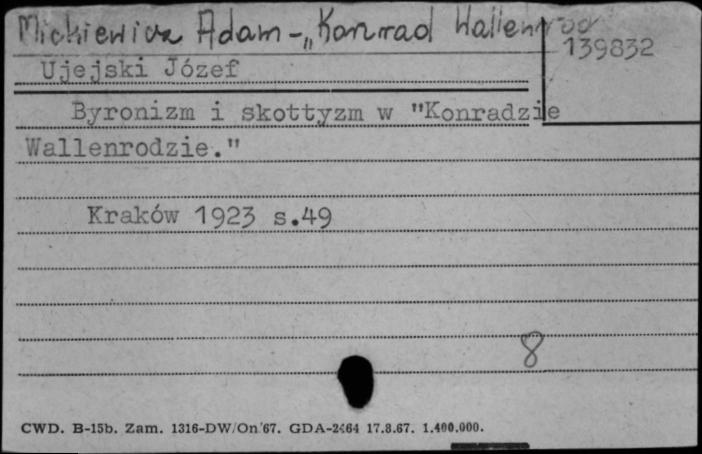 Mickiewicz Adam - „Konrad Wallenrod
139832
Ujejski Józef
Byronizm i skottyzm w "Konradzie
Wallenrodzie."
Kraków 1923 s.49
8
CWD. B-15b. Zam. 1316-DW/On/67. GDA-2464 17.8.67. 1.400.000.